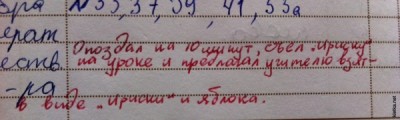 №35, 37, 39, 41, 53а
ерат
Опоздал на 10 минут, съел „ириску"
еств
на уроке и предлагал учителю взят-
-ра
в виде „ириски" и яблока.